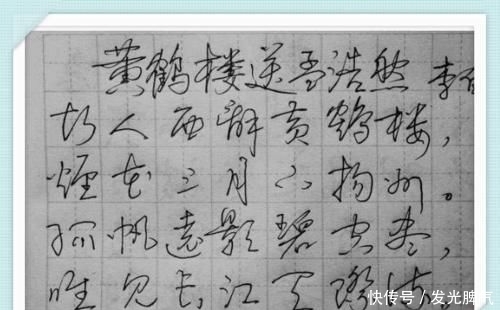 黄鹤楼送孟浩然 李白
故人西辞黄鹤楼，
煙花三月下扬州。
孤帆遠影碧空尽，
唯见长江天际流
快传号/发光脾气